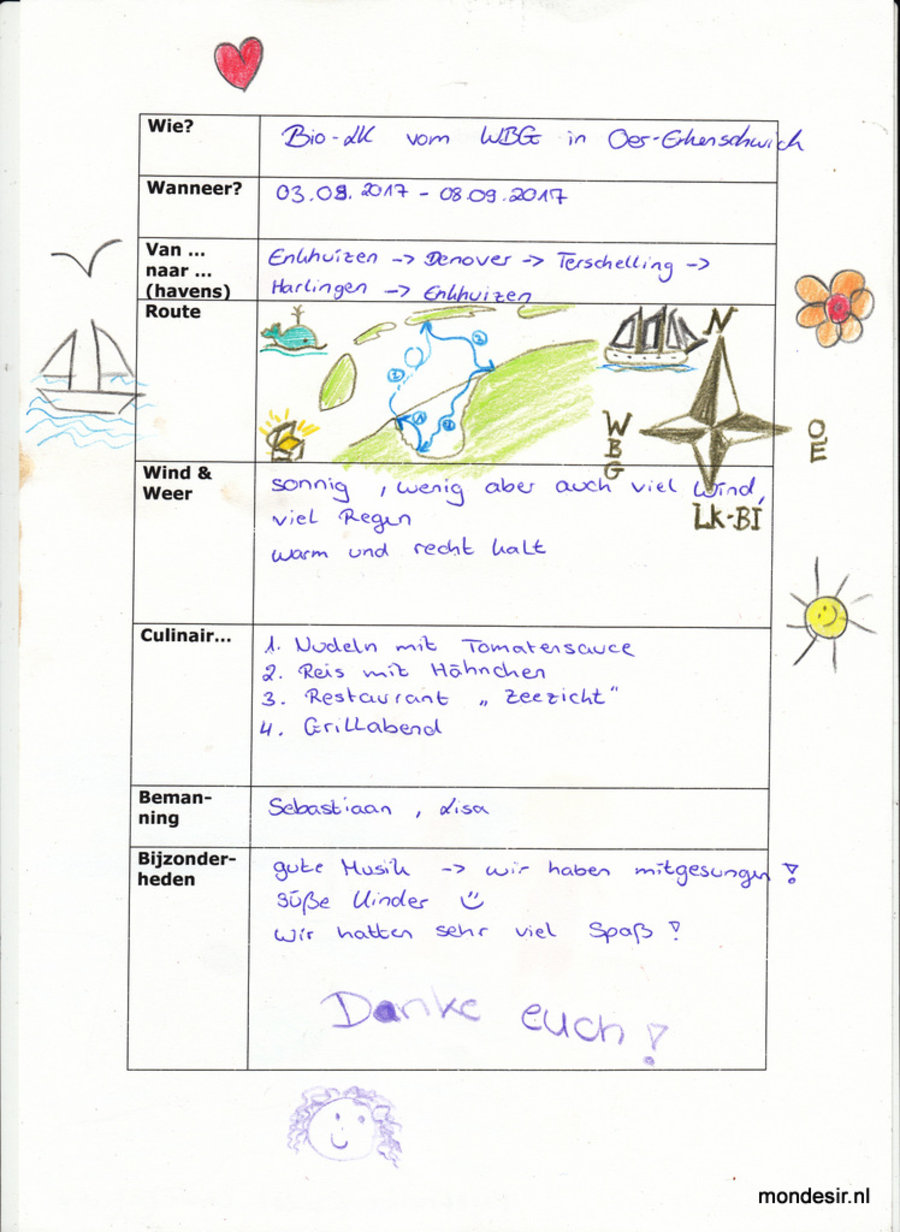 Wie?
Bio-LK vom WBG in Oer-Erkenschwick
Wanneer?
03.09.2017 - 08.09.2017
Van ...
naar ...
(havens)
Enkhuizen -> Denover -> Terschelling ->
Harlingen -> Enkhuizen
Route
N
W
B
G
O
E
LK-BI
1
2
3
4
Wind &
Weer
sonnig, wenig aber auch viel Wind,
viel Regen
warm und recht kalt
Culinair...
1. Nudeln mit Tomatensauce
2. Reis mit Hähnchen
3. Restaurant „Zeezicht"
4. Grillabend
Beman-
ning
Sebastiaan, Lisa
Bijzonder-
heden
gute Musik -> wir haben mitgesungen!
süße Kinder
wir hatten sehr viel Spaß!
Danke euch!
mondesir.nl